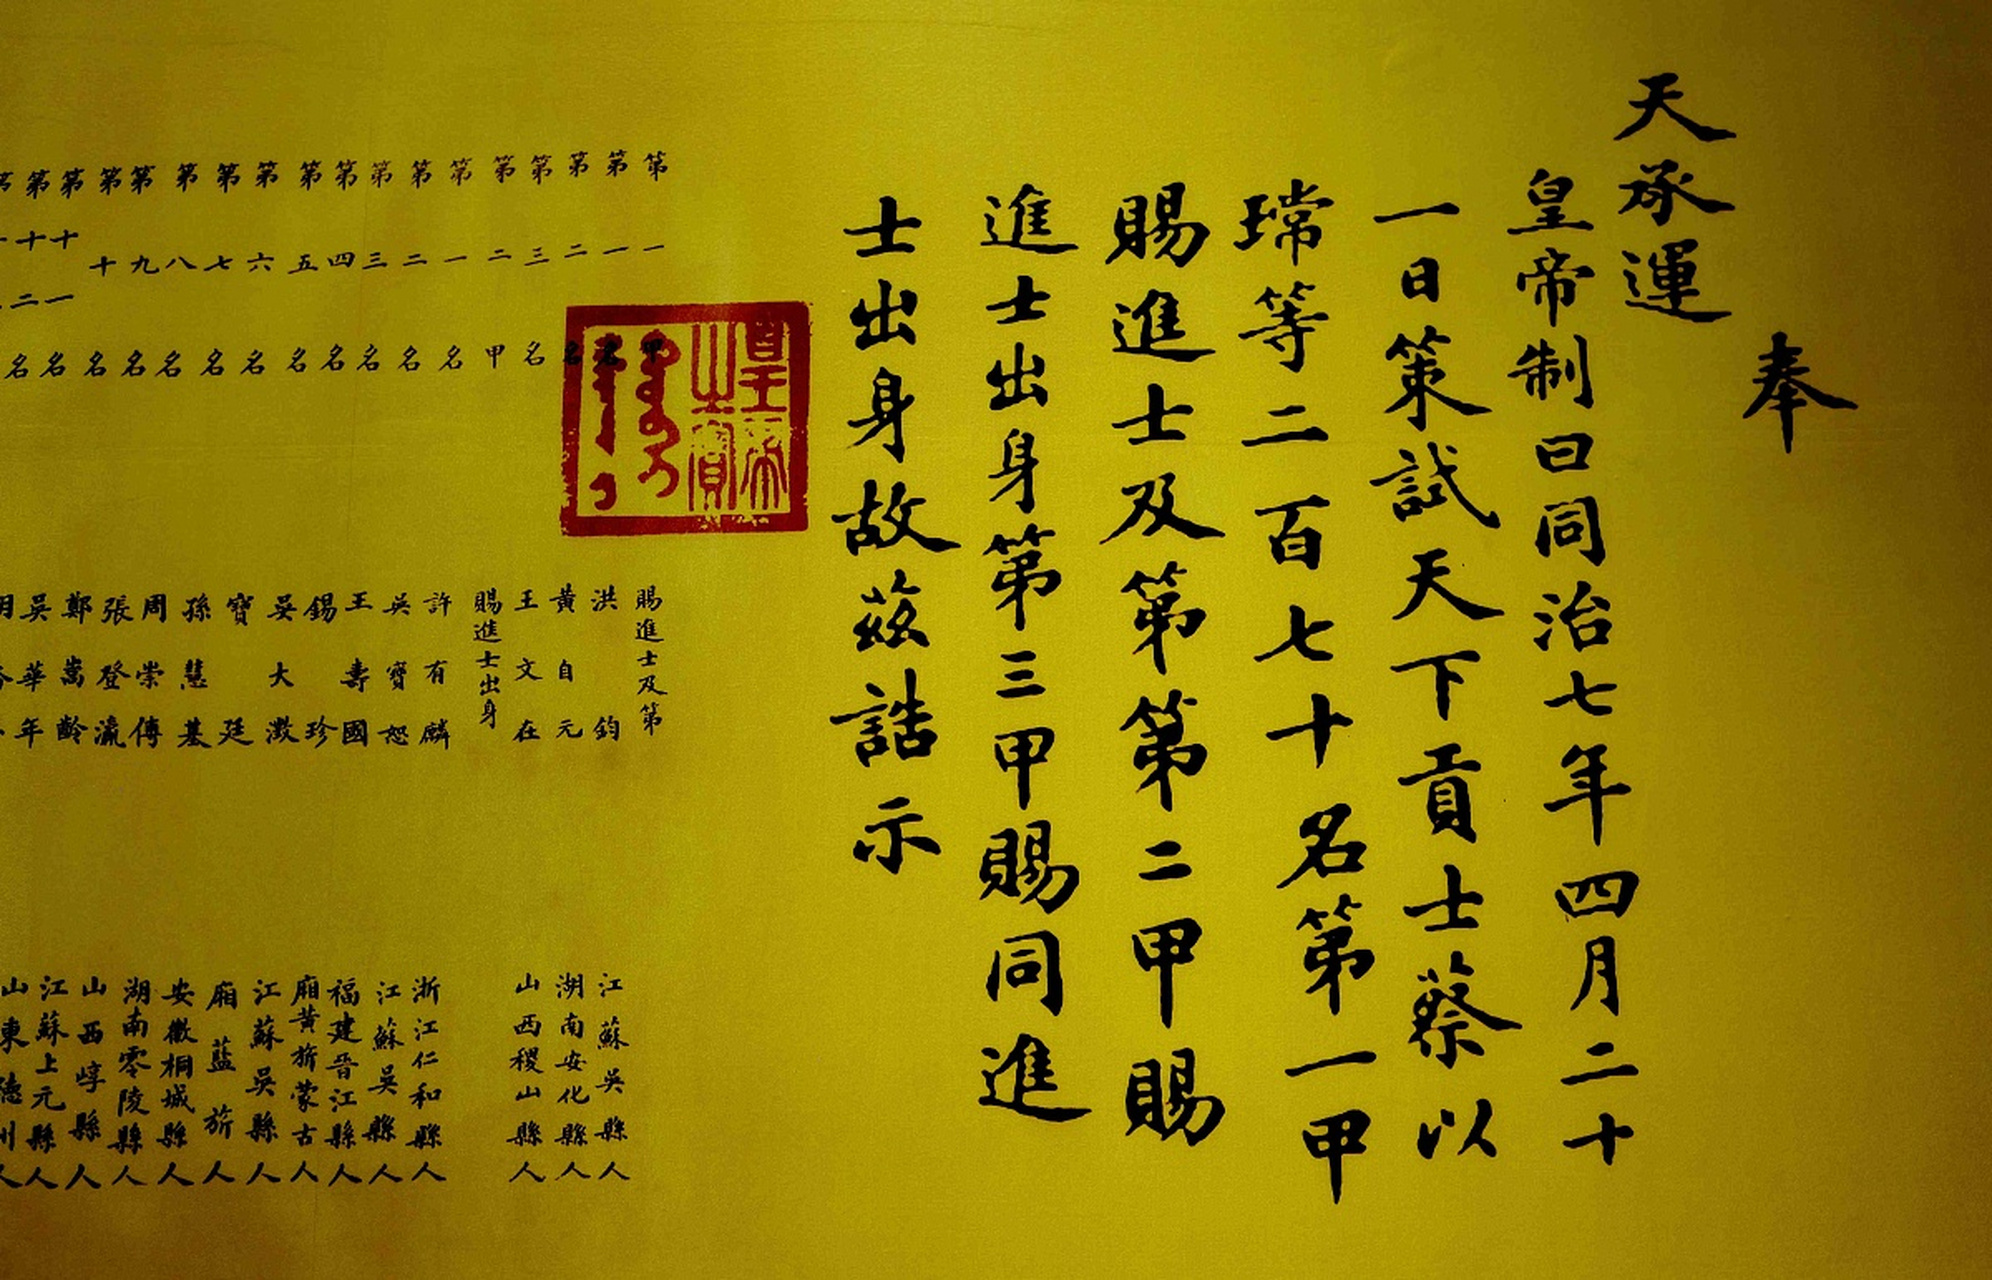 奉
天承運
皇帝制曰同治七年四月二十
一日策試天下貢士蔡以
瑺等二百七十名第一甲
賜進士及第第二甲賜
進士出身第三甲賜同進
士出身故茲誥示
皇帝之寶
第一甲 賜進士及第
第一名 洪鈞 江蘇吳縣人
第二名 黃自元 湖南安化縣人
第三名 王文在 山西稷山縣人
第二甲 賜進士出身
第一名 許有麟 浙江仁和縣人
第二名 吳寶恕 江蘇吳縣人
第三名 王壽國 福建晋江縣人
第四名 錫珍 廂黃旂蒙古人
第五名 吳大澂 江蘇吳縣人
第六名 寶廷 廂藍旂人
第七名 孫慧基 安徽桐城縣人
第八名 周崇傅 湖南零陵縣人
第九名 張登瀛 山西崞縣人
第十名 鄭嵩齡 江蘇上元縣人
第十一名 吳華年 山東德州人
第十二